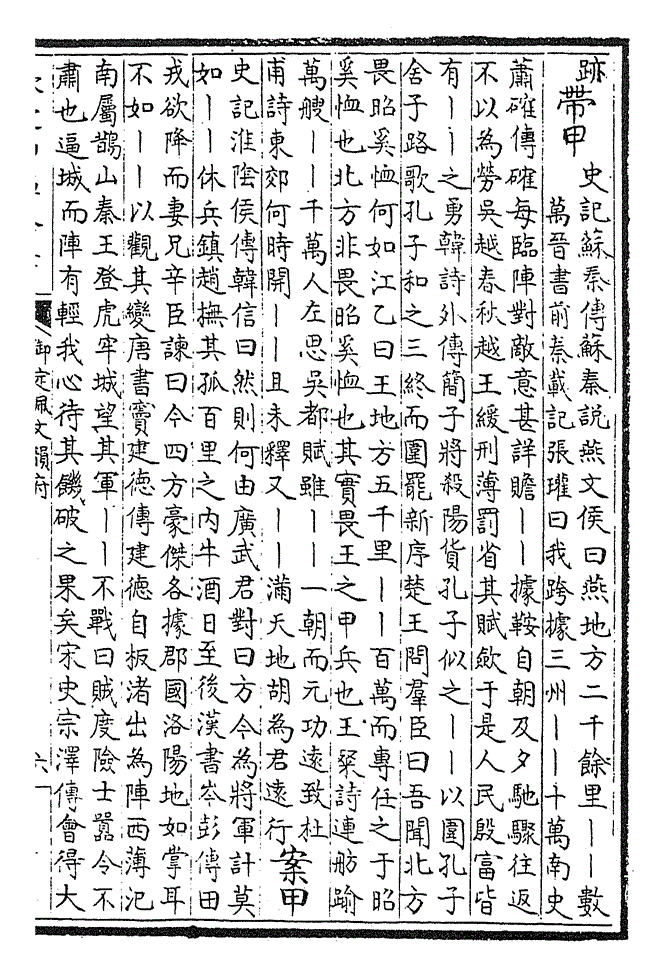 跡
帶甲
史記蘇秦傳蘇秦説燕文侯曰燕地方二千餘里丨丨數
萬晉書前秦載記張瓘曰我跨據三州丨丨十萬南史
蕭確傳確每臨陣對敵意甚詳贍丨丨據鞍自朝及夕馳驟往返
不以為勞吳越春秋越王緩刑薄罰省其賦歛于是人民殷富皆
有丨丨之勇韓詩外傳簡子將殺陽貨孔子似之丨丨以圍孔子
舍子路歌孔子和之三終而圍罷新序楚王問羣臣曰吾聞北方
畏昭奚恤何如江乙曰王地方五千里丨丨百萬而專任之于昭
奚恤也北方非畏昭奚恤也其實畏王之甲兵也王粲詩連舫踰
萬艘丨丨千萬人左思吳都賦雖丨丨一朝而元功遠致杜
甫詩東郊何時開丨丨且未釋又丨丨滿天地胡為君遠行
案甲
史記淮陰侯傳韓信曰然則何由廣武君對曰方今為將軍計莫
如丨丨休兵鎮趙撫其孤百里之内牛酒日至後漢書岑彭傳田
戎欲降而妻兄辛臣諫曰今四方豪傑各據郡國洛陽地如掌耳
不如丨丨以觀其變唐書竇建德傳建德自板渚出為陣西薄汜
南屬鵲山秦王登虎牢城望其軍丨丨不戰曰賊度險士囂令不
肅也逼城而陣有輕我心待其饑破之果矣宋史宗澤傳會得大
御定佩文韻府